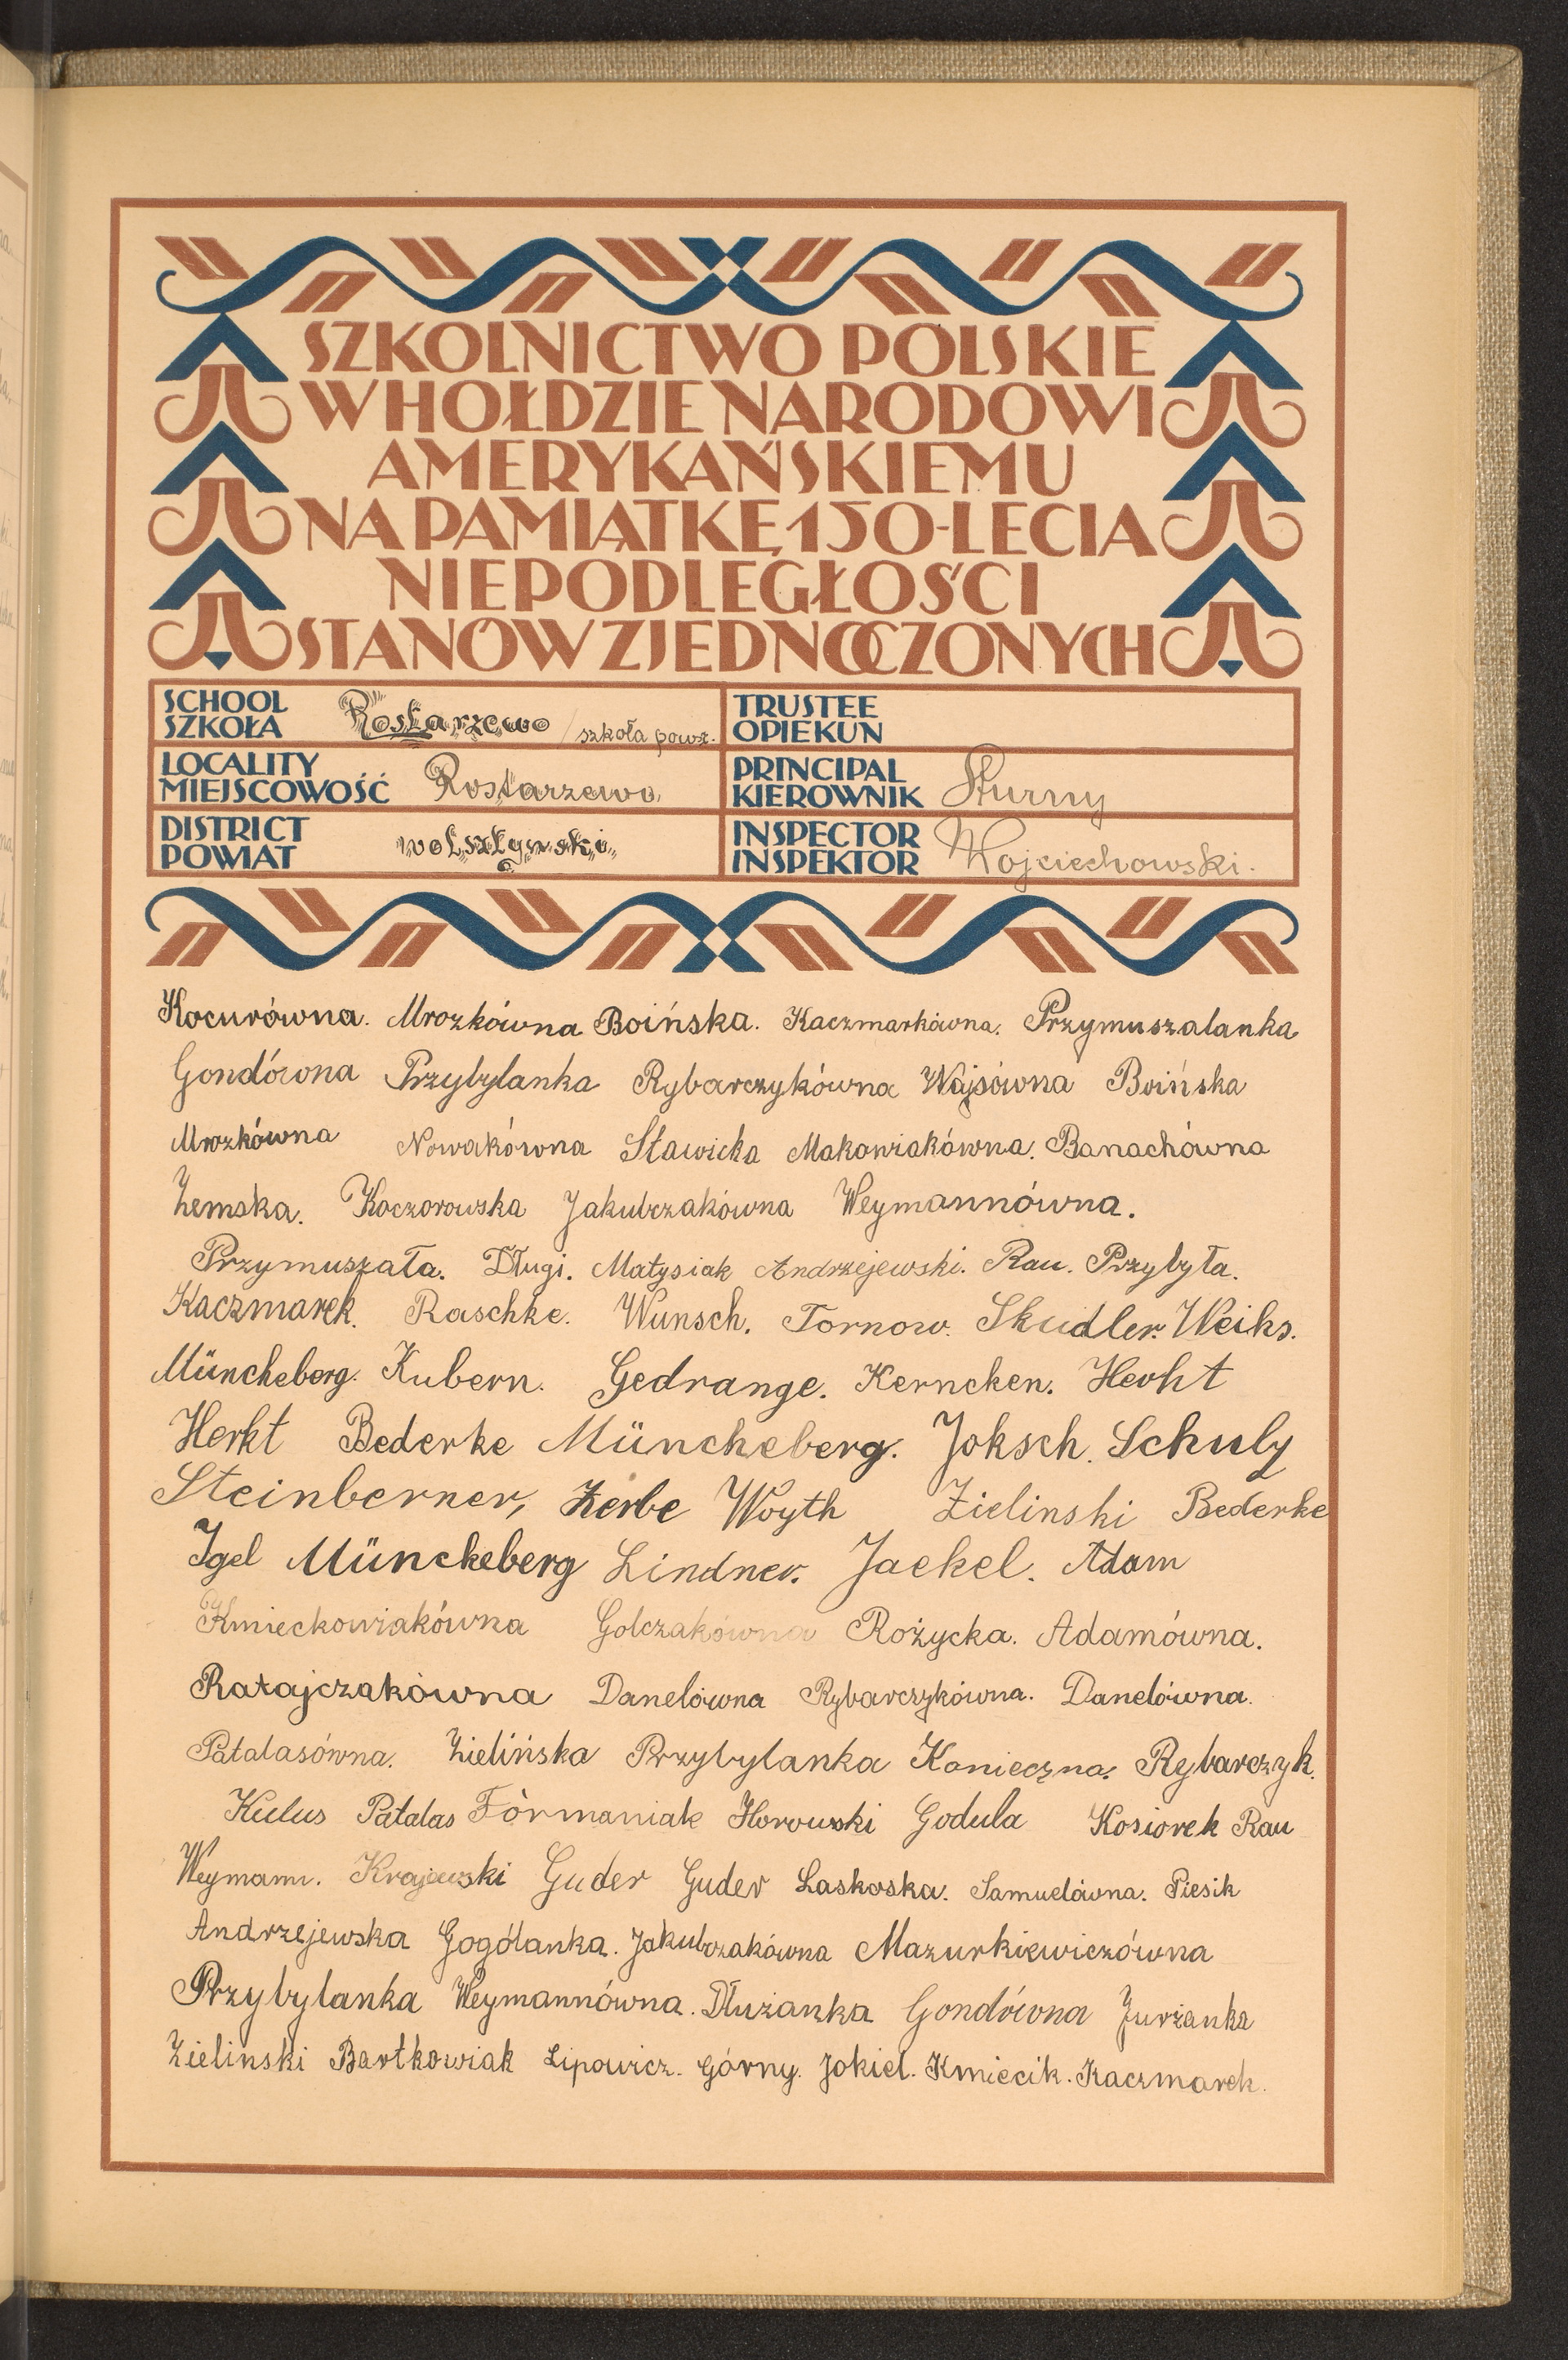 SZKOLNICTWO POLSKIE
W HOŁDZIE NARODOWI
AMERYKAŃSKIEMU
NA PAMIĄTKĘ 150-LECIA
NIEPODLEGŁOŚCI
STANÓW ZJEDNOCZONYCH
SCHOOL
SZKOŁA Rostarzewo / szkoła powsz.
TRUSTEE
OPIEKUN
LOCALITY
MIEJSCOWOŚĆ Rostarzewo
PRINCIPAL
KIEROWNIK Sturny
DISTRICT
POWIAT wolsztyński
INSPECTOR
INSPEKTOR Wojciechowski.
Kocurówna. Mrozkówna Boińska. Kaczmarkówna. Przymuszalanka
Gondówna Przybylanka Rybarczykówna Wajsówna Boińska
Mrozkówna Nowakówna Sławicka Makowiakówna. Banachówna
Zemska. Kaczorowska Jakubczakówna Weymannówna.
Przymuszała. Długi. Matysiak Andrzejewski. Rau. Przybyła.
Kaczmarek. Raschke. Wunsch. Tornow. Skudler. Weiks.
Müncheberg. Kubern. Gedrange. Kerncken. Herkt
Herkt Bederke Müncheberg. Joksch. Schulz
Steinberner, Zerbe Woyth Zielinski Bederke
Igel Müncheberg Lindner. Jaekel. Adam
Kmieckowiakówna Golczakówna Rożycka. Adamówna.
Ratajczakówna Danelówna Rybarczykówna. Danelówna.
Patalasówna. Zielińska Przybylanka Konieczna. Rybarczyk.
Kulus Patalas Formaniak Horowski Godula Kosiorek Rau
Weymann. Krajewski Guder Guder Laskoska. Samuelówna. Piesik
Andrzejewska Gogólanka. Jakubczakówna Mazurkiewiczówna
Przybylanka Weymannówna. Dłużanka Gondówna Jurżanka
Zielinski Bartkowiak Lipowicz. Górny. Jokiel. Kmiecik. Kaczmarek.